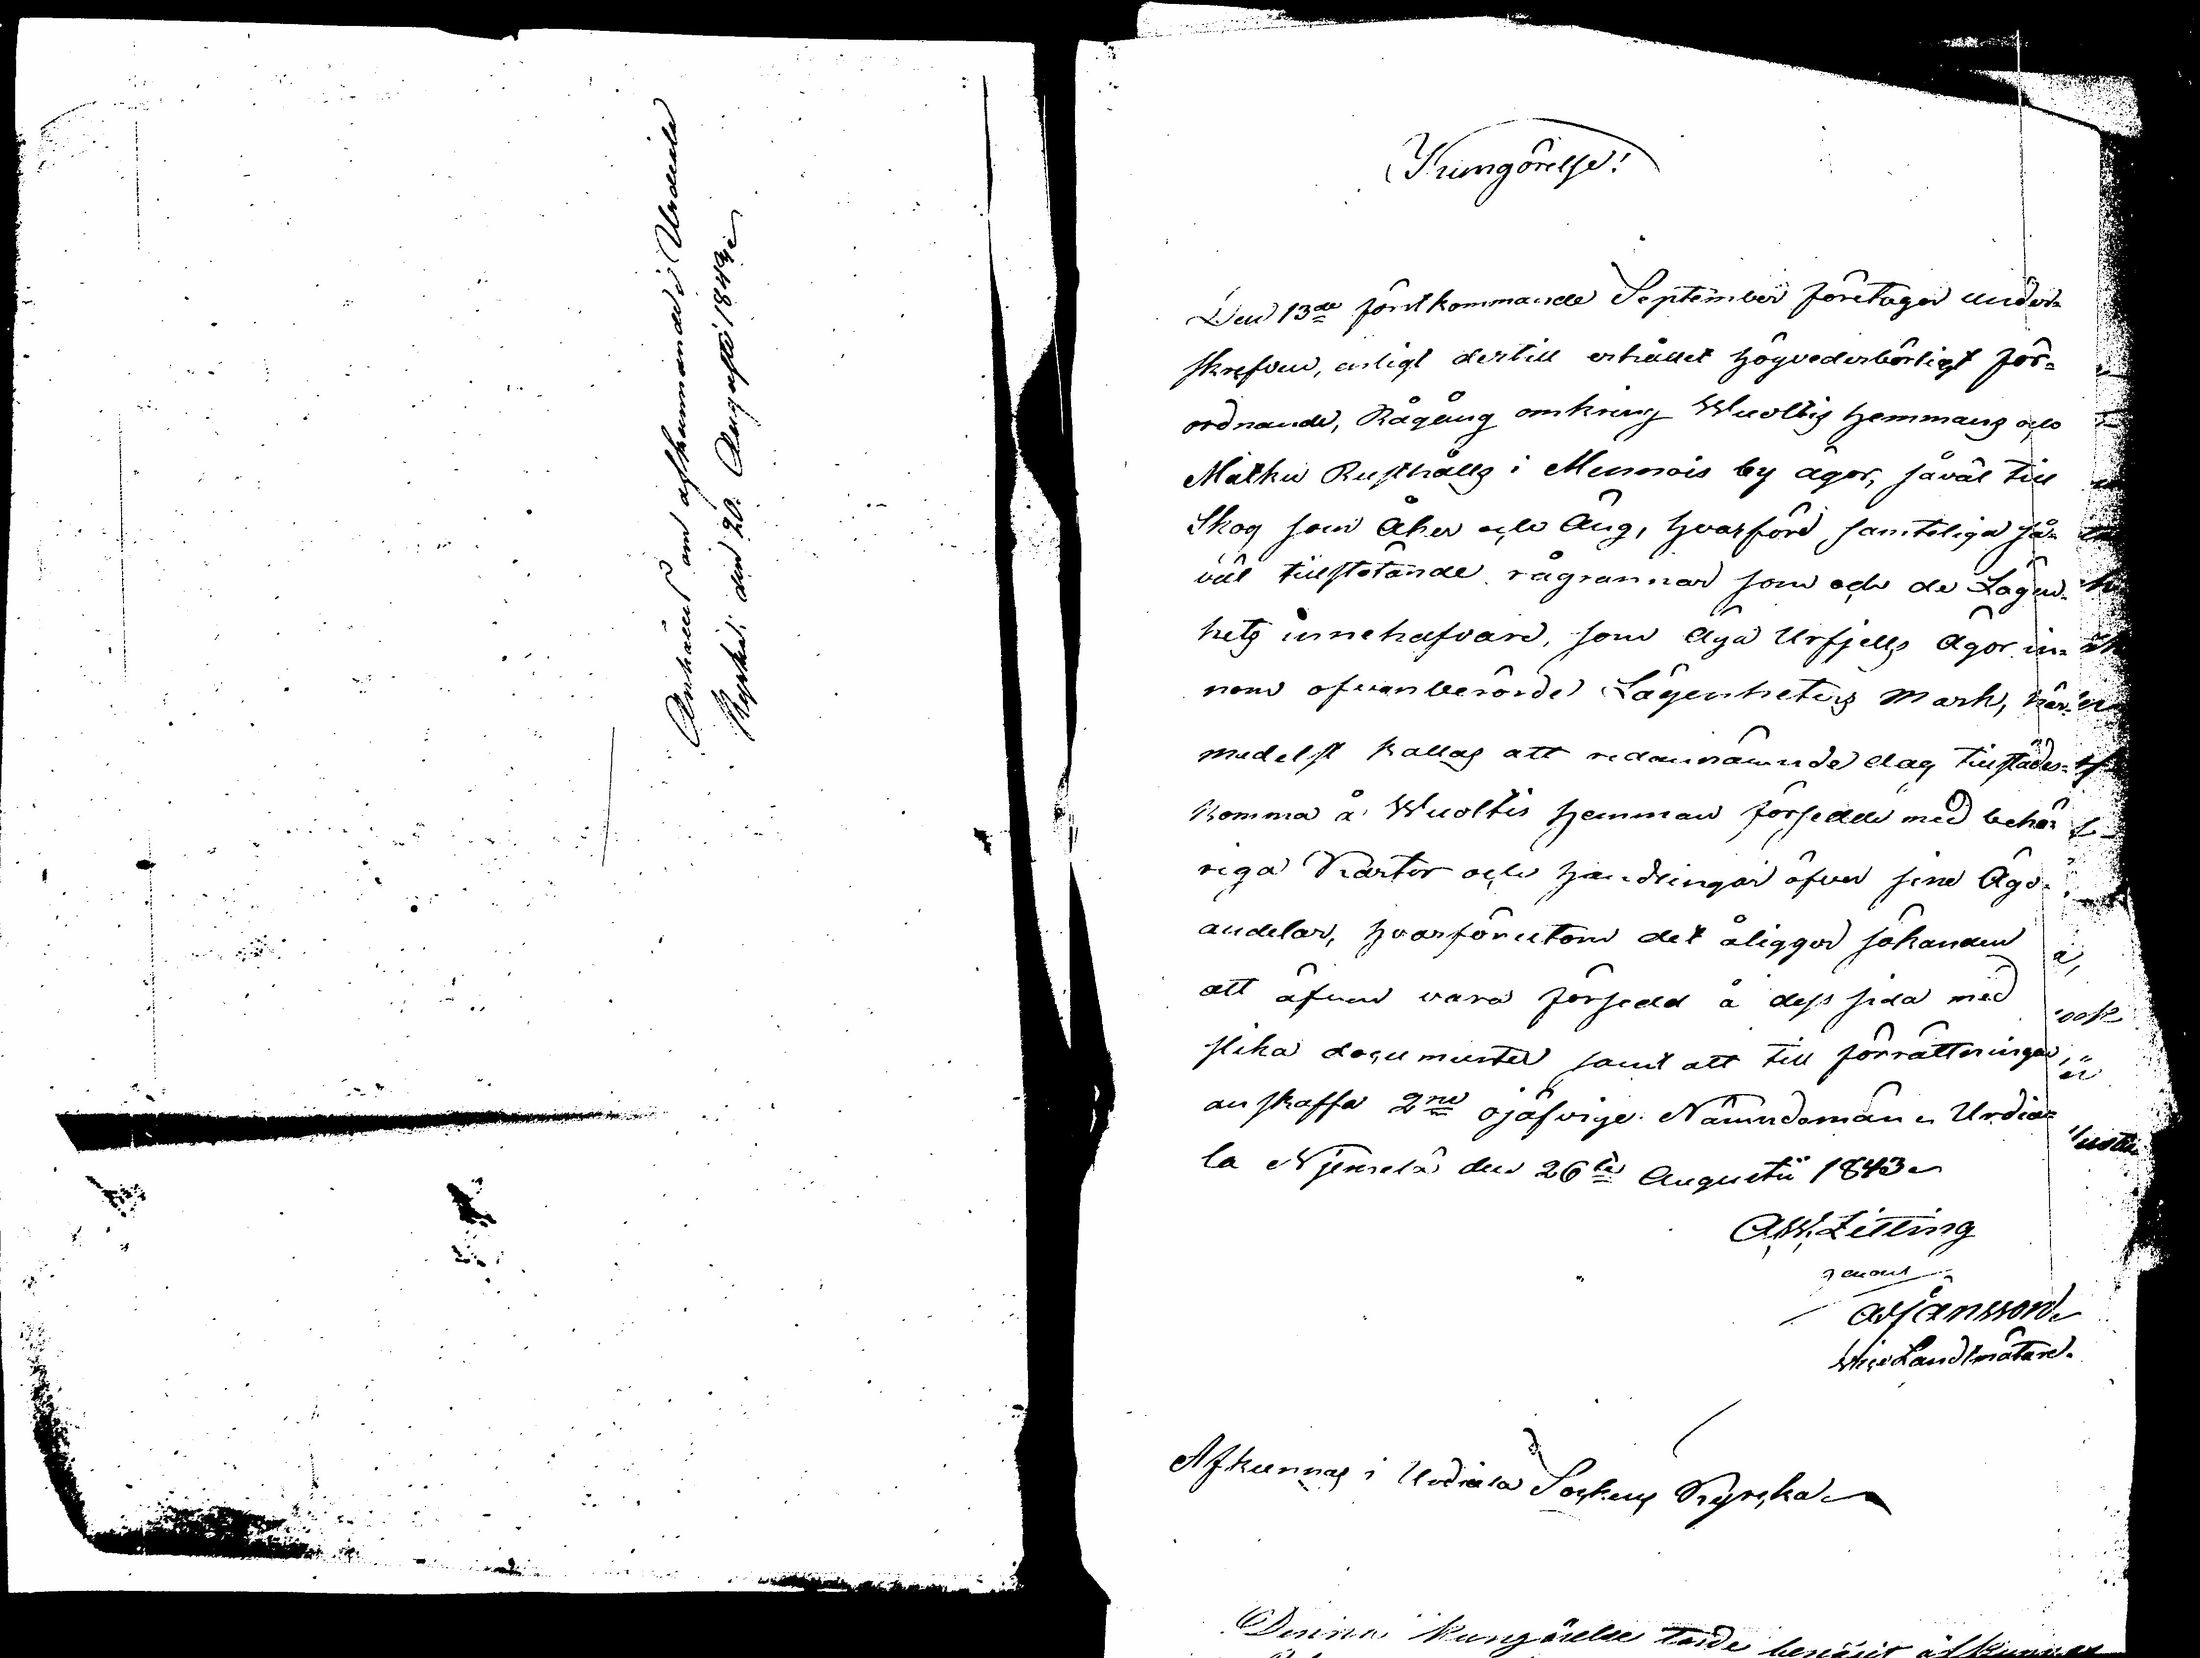 Anhålles om afkunnande i Urdiala
Kyrka, den 20. Augusti 1843.
Kungörelse!
Den 13de förstkommande September företager under-
skrefven, enligt dertill erhållet högvederbörligt för-
ordnande, Rågång omkring Wuoltis hemmans och
Matku Rusthålls i Mennois by ägor, såväl till
Skog som Åker och Äng, hvarföre samteliga så-
väl tillstötande rågrannar som och de Lägen-
hets innehafvare, som äga Urfjells ägor in-
nom ofvanberörde Lägenheters mark, här-
medelst kallas att redannämnde dag tillstädes-
komma å Wuoltis hemman försedde med behö-
riga Kartor och handlingar öfver sina Ägo-
andelar, hvarförutom det åligger sökanden
att äfven vara försedd å dess sida med
slika documenter samt att till förrättningen
anskaffa 2ne ojäfvige Nämndemän. Urdia-
la den 26te Augusti 1843.
A.W. Zitting
genom
Jansson
Vice Landtmätare.
Afkunnas i Urdiala Sockens Kyrcka
Denna kungörelse torde benäget afkunnas